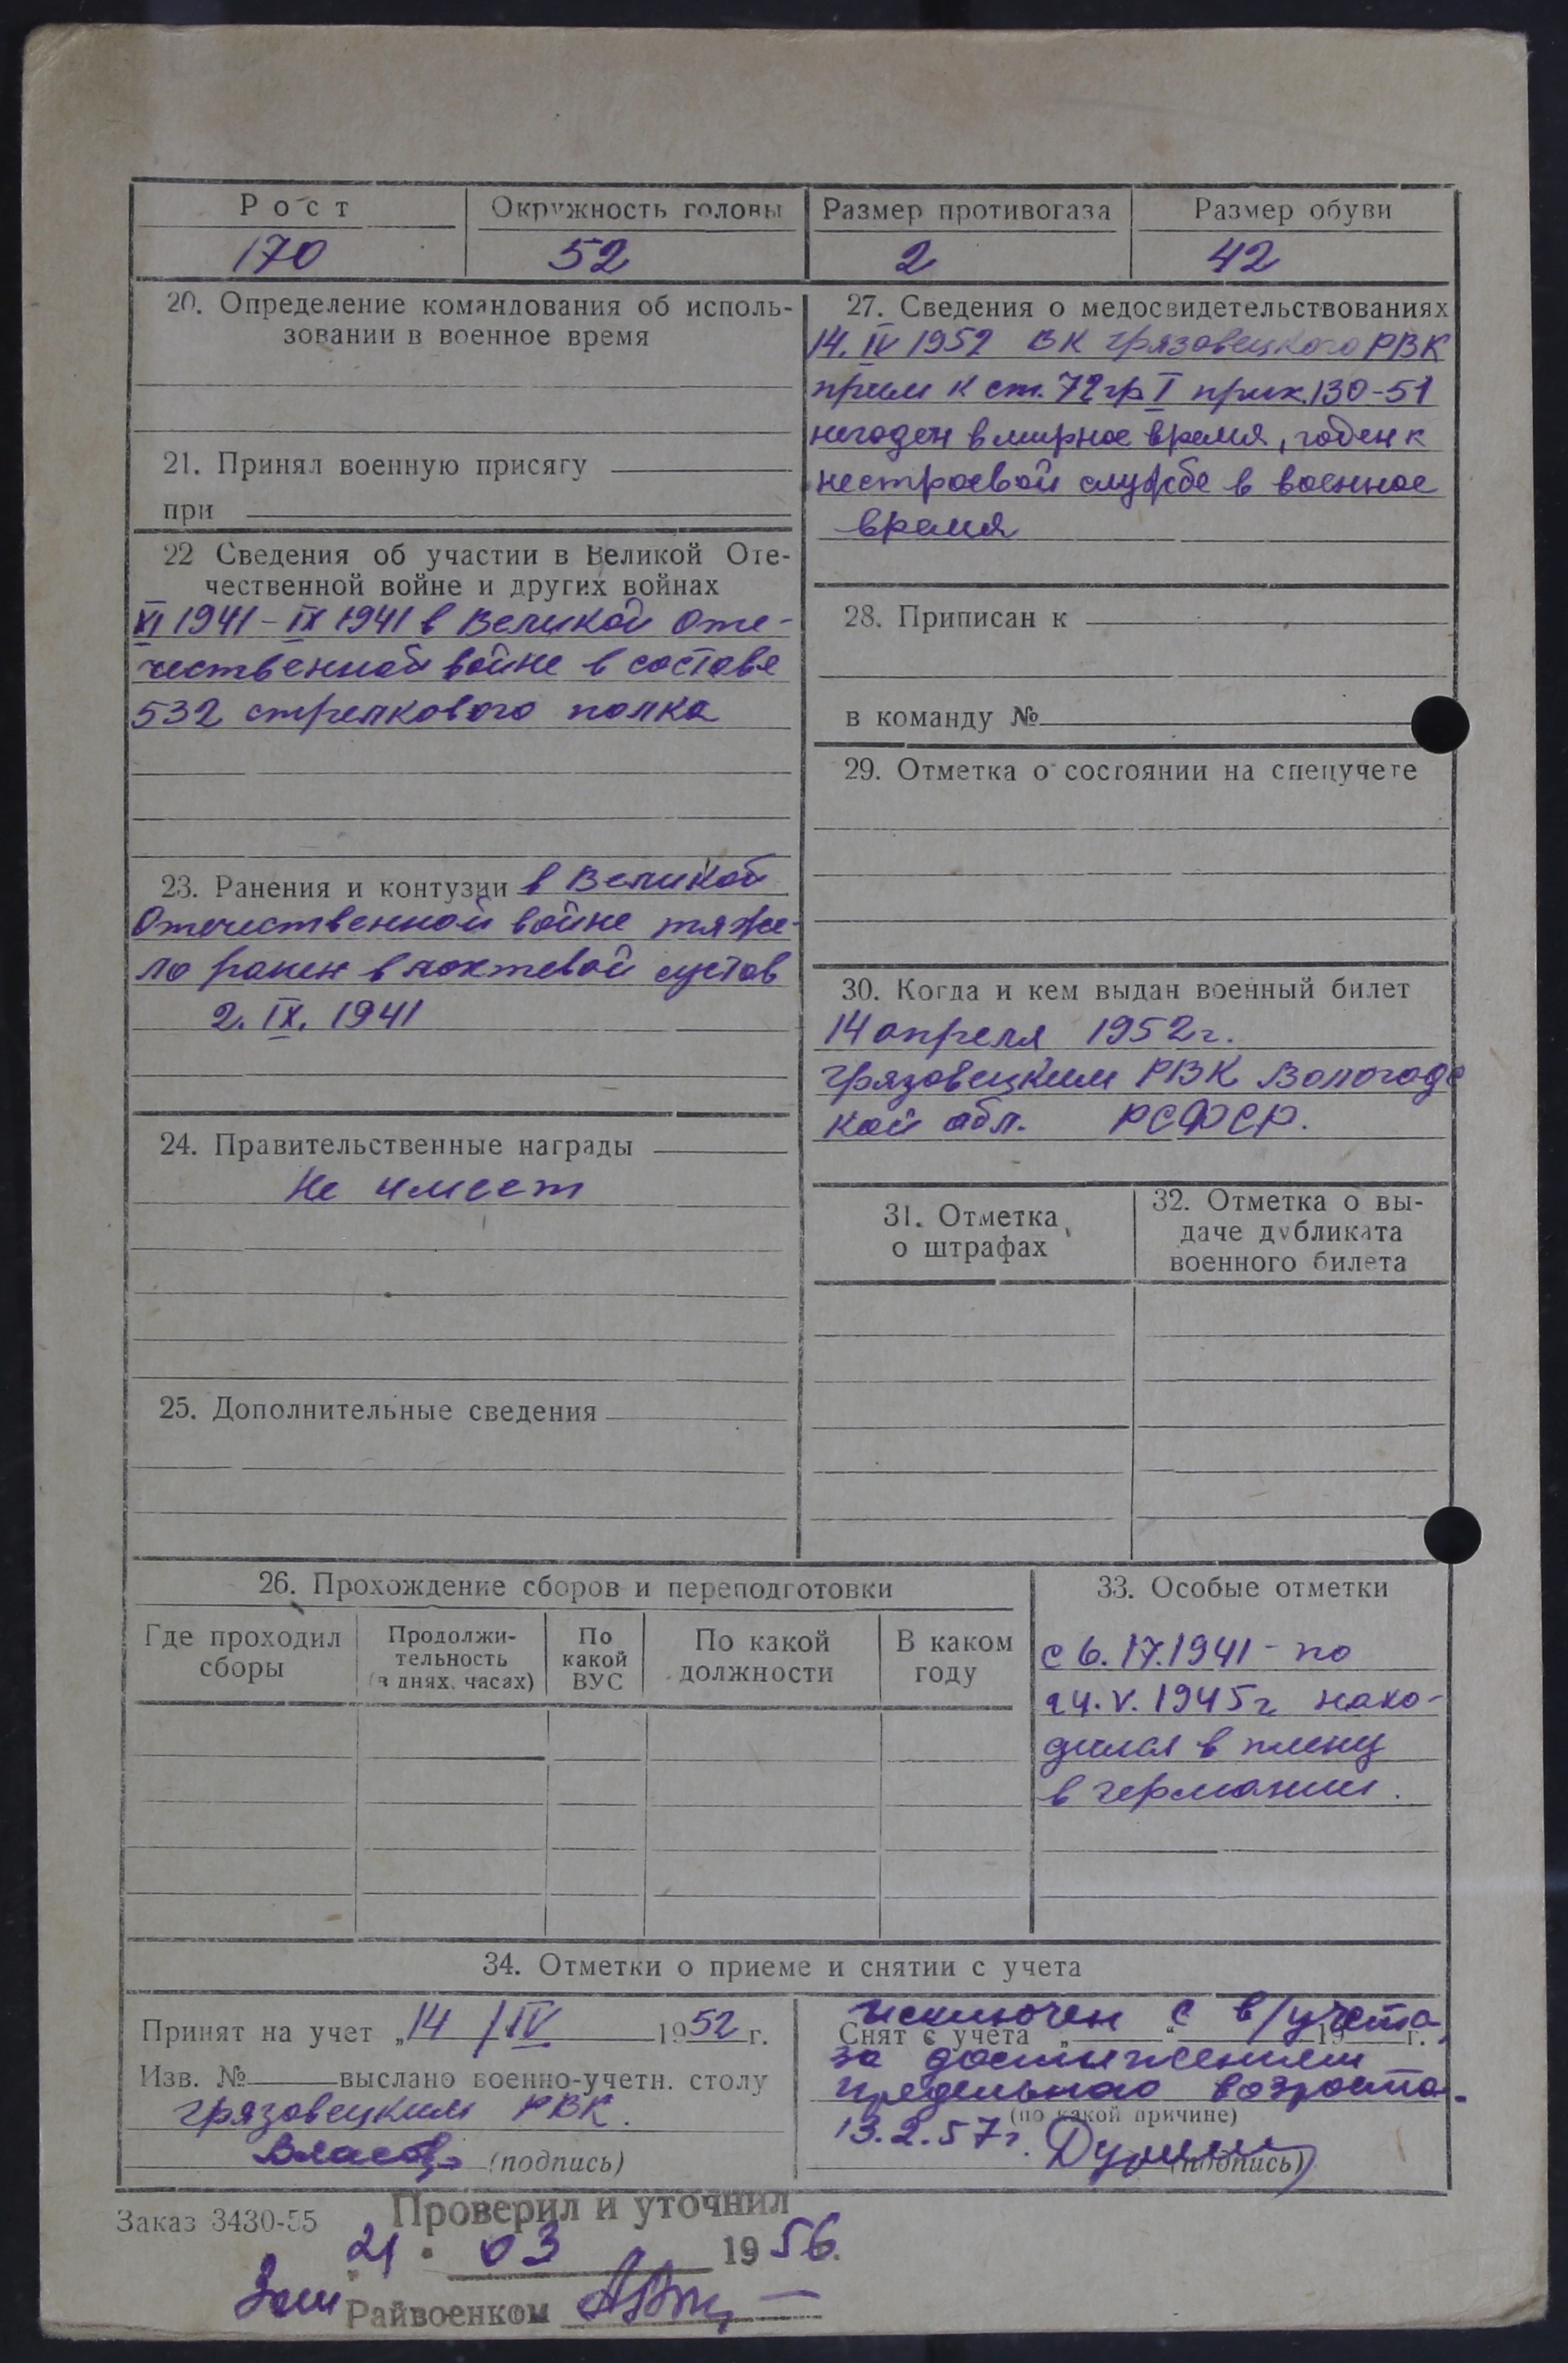 Рост
Окружность головы
Размер противогаза
Размер обуви
170
52
2
42
20. Определение командования об исполь-
зовании в военное время
21. Принял военную присягу
при
22 Сведения об участии в Великой Оте-
чественной войне и других войнах
VI 1941 - IX 1941 в Великой Оте-
чественной войне в составе
532 стрелкового полка
23. Ранения и контузии в Великой
Отечественной войне тяже-
ло ранен в локтевой сустав
2. IX. 1941
24. Правительственные награды
Не имеет
25. Дополнительные сведения
27. Сведения о медосвидетельствованиях
14. IV 1952 ВК Грязовецкого РВК
прим к ст. 72 гр I прик. 130-51
негоден в мирное время, годен к
нестроевой службе в военное
время
28. Приписан к
в команду №
29. Отметка о состоянии на спецучете
30. Когда и кем выдан военный билет
14 апреля 1952 г.
Грязовецким РВК Вологодс
кой обл. РСФСР.
31. Отметка
о штрафах
32. Отметка о вы-
даче дубликата
военного билета
26. Прохождение сборов и переподготовки
Где проходил
сборы
Продолжи-
тельность
(в днях, часах)
По
какой
ВУС
По какой
должности
В каком
году
33. Особые отметки
с 6. 17. 1941 - по
24. V. 1945 г нахо-
дился в плену
в германии.
34. Отметки о приеме и снятии с учета
Принят на учет „14 / IV 1952 г.
Изв. № выслано военно-учетн. столу
Грязовецким РВК.
Власов (подпись)
исключен с в/учета
Снят с учета „ “ 19 г.
за достижением
предельного возраста.
(по какой причине)
13. 2. 57 г.
(подпись)
Заказ 3430-55
Проверил и уточнил
21. 03 1956.
Зам Райвоенком